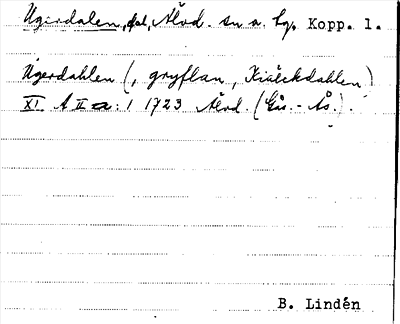 Ugerdalen, dal, Älvd. sn o. hg, Kopp. l.
Ugerdahlen (, gryflan, Kiälckdahlen)
XI A II a: 1 1723 Älvd. (Gås. - Ås.).
B. Lindén